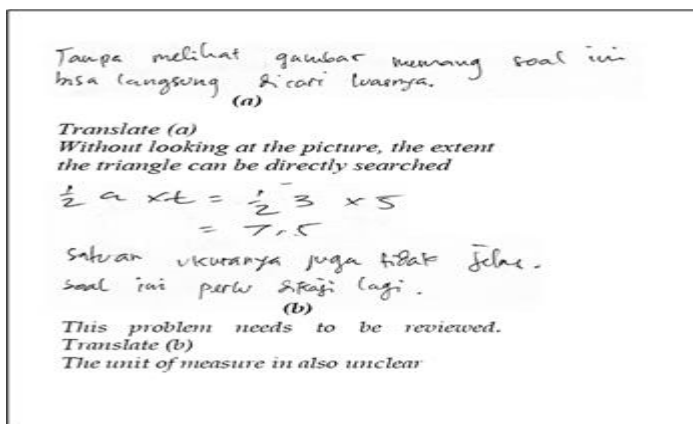 Tanpa melihat gambar memang soal ini
bisa langsung dicari luasnya.
(a)
Translate (a)
Without looking at the picture, the extent
the triangle can be directly searched
½ a x t = ½ 3 x 5
= 7,5
Satuan ukuranya juga tidak jelas.
soal ini perlu dikaji lagi.
(b)
This problem needs to be reviewed.
Translate (b)
The unit of measure in also unclear